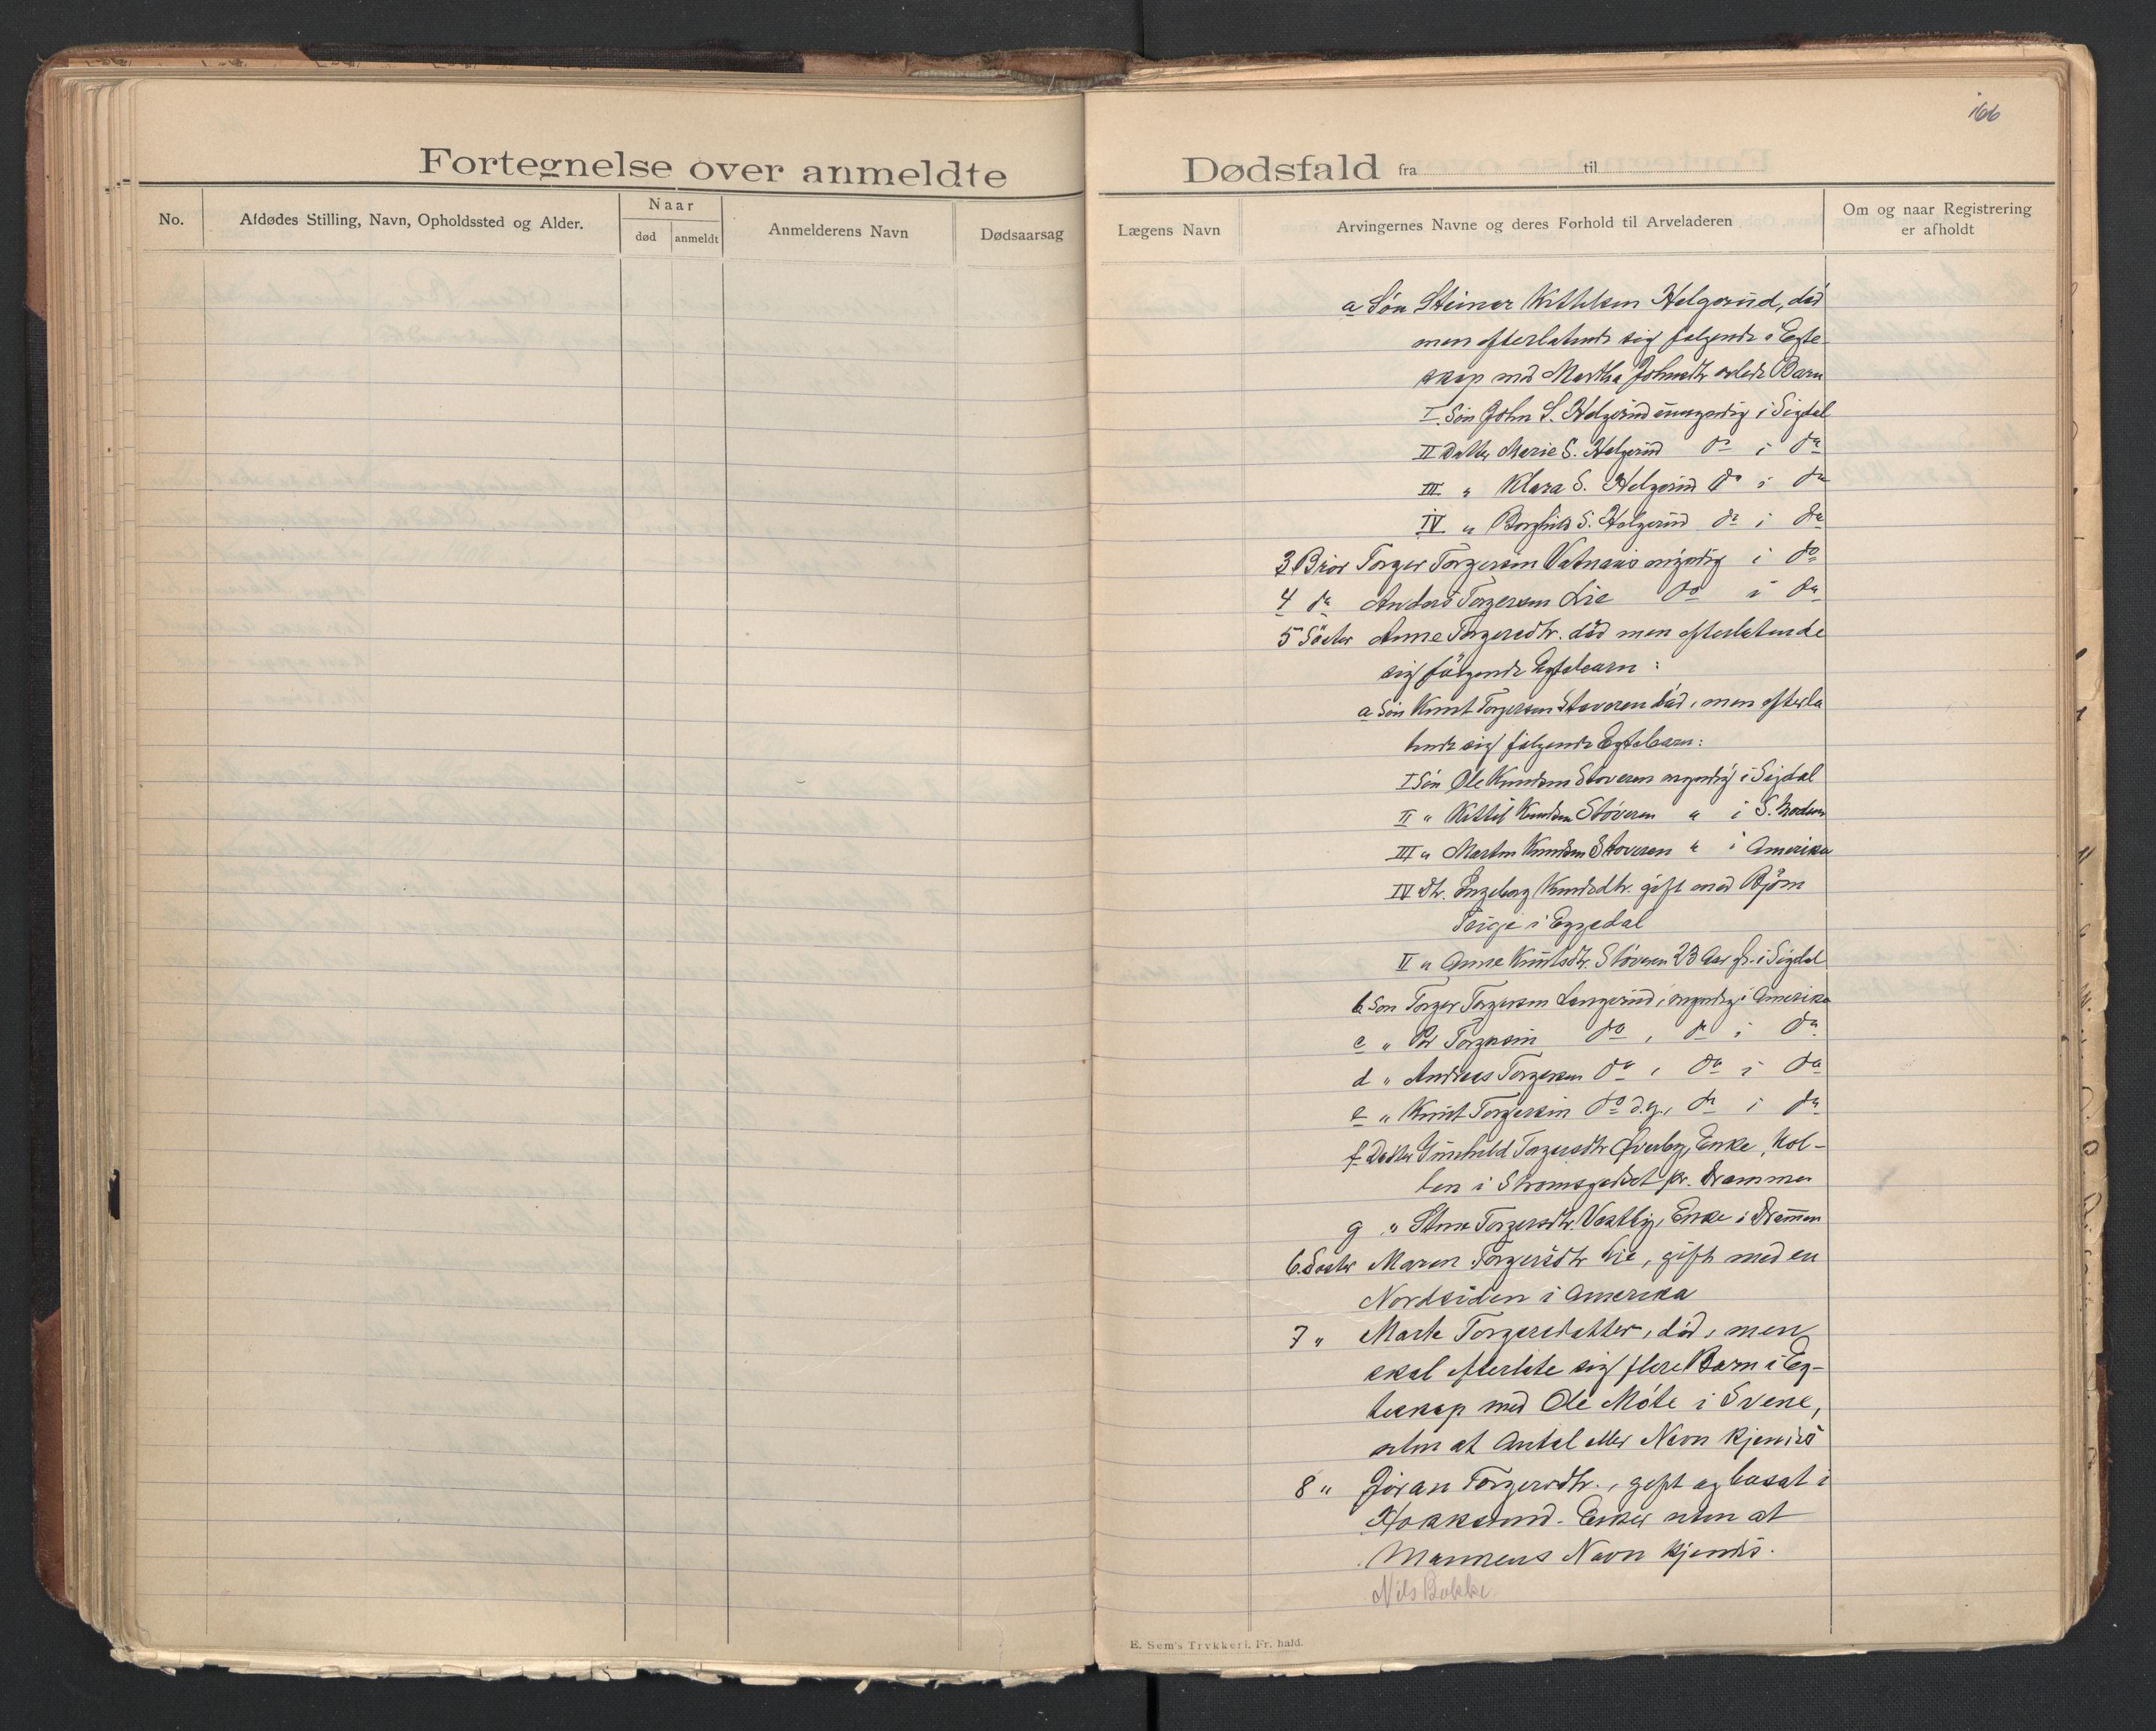 166
Fortegnelse over anmeldte
Dødsfald fra til
No.
Afdødes Stilling, Navn, Opholdssted og Alder.
Naar
død
anmeldt
Anmelderens Navn
Dødsaarsag
Lægens Navn
Arvingernes Navne og deres Forhold til Arveladeren
Om og naar Registrering
er afholdt
a Søn Steiner Kittilsen Helgerud, død
men efterlatende sig følgende i Egte-
skap med Martha Johnsdtr avlede Barn
I Søn John S. Helgerud umyndig i Sigdal
II Datter Marie S. Helgerud do i do
III " Klara S. Helgerud do i do
IV " Borghild S. Helgerud do i do
3 Bror Torger Torgersen Vatnaas myndig i do
4 do Anders Torgersen Lie do i do
5 Søster Anne Torgersdtr. død men efterlatende
sig følgende Egtebarn :
a Søn Knut Torgersen Støveren død, men efterla
tende sig følgende Egtebarn:
I Søn Ole Knudsen Støveren myndig i Sigdal
II " Kittil Knudsen Støveren " i S.
III " Martin Knudsen Støveren " i Amerika
IV Dtr. Engeborg Knudsdtr. gift med Bjørn
i Eggedal
V " Anne Knutsdtr. Støveren 23 Aar gl. i Sigdal
b Søn Torger Torgersen Langerud, myndig i Amerika
c " Per Torgersen do, do i do
d " Andreas Torgersen do, do i do
e " Knut Torgersen do d.y., do i do
f Datter Gunhild Torgersdtr Øverby, Enke, Kol-
len i Strømsgodset pr. Drammen
g " Torgersdtr. Vestby, Enke i Drammen
6. Søster Maren Torgersdtr Lie, gift med en
Nordsiden i Amerika
7 " Marte Torgersdatter, død, men
skal efterlate sig flere Barn i Eg-
teskap med Ole Móte i Svene,
uten at Antal eller Navn kjendes
8 " Jøran Torgersdtr., gift og bosat i
Hokksund. Enke uten at
Mannens Navn kjendes.
Nils Bakke.
E. Sem's Trykkeri, Fr. hald.